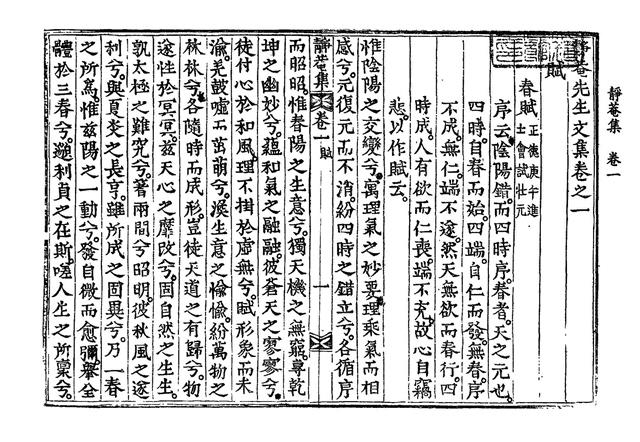 靜菴集 卷一
靜菴先生文集卷之一
賦
春賦 正德庚午進
士會試壯元
序云陰陽錯而四時序。春者。天之元也。
四時。自春而始。四端。自仁而發。無春。序
不成。無仁。端不遂。然天無欲而春行。四
時成。人有欲而仁喪。端不充。故心自竊
悲。以作賦云。
惟陰陽之交變兮。寓理氣之妙要。理乘氣而相
感兮。元復元而不消。紛四時之錯立兮。各循序
靜菴集 卷一 賦 一
而昭昭。惟春陽之生意兮。獨天機之無竆。專乾
坤之幽妙兮。蘊和氣之融融。彼蒼天之寥寥兮。
徒付心於和風。理不掛於虛無兮。賦形象而未
渝。羌鼓噓而萬萌兮。渙生意之愉愉。紛萬物之
林林兮。各隨時而成形。豈徒天道之有歸兮。物
遂性於冥冥。玆天心之靡改兮。固自然之生生。
孰太極之難究兮。著兩間兮昭明。彼秋風之遂
利兮。與夏炎之長亨。雖所成之固異兮。乃一春
之所爲。惟玆陽之一動兮。發自微而愈彌。擧全
體於三春兮。遡利貞之在斯。噫人生之所稟兮。